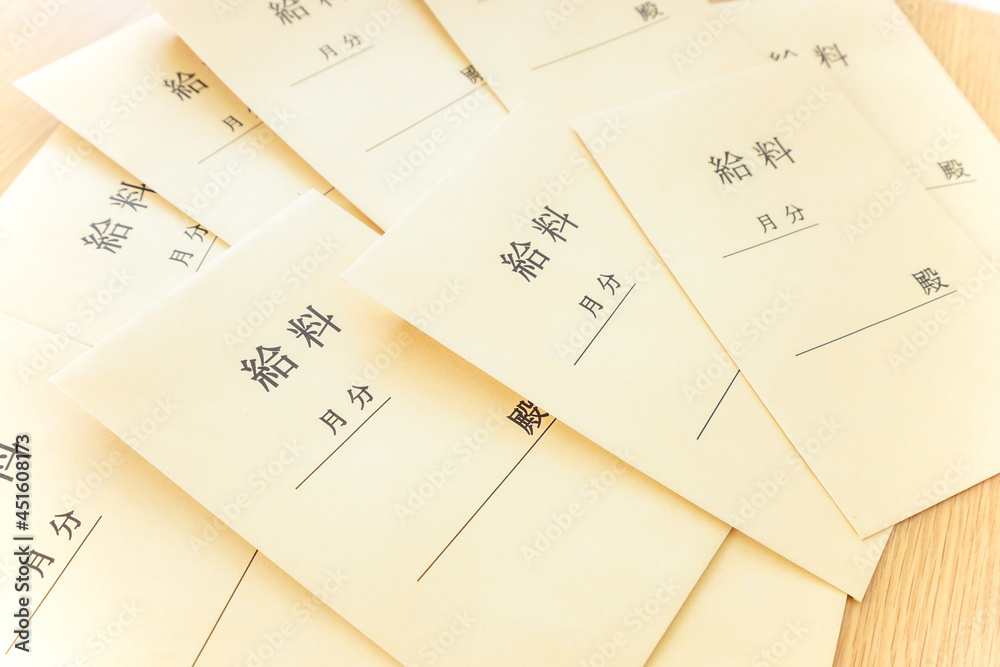 給料
月分
殿
給料
月分
殿
給料
月分
給料
月分
殿
給料
月分
殿
給料
月分
給料
月分
殿
料
月分
Adobe Stock | #451608173